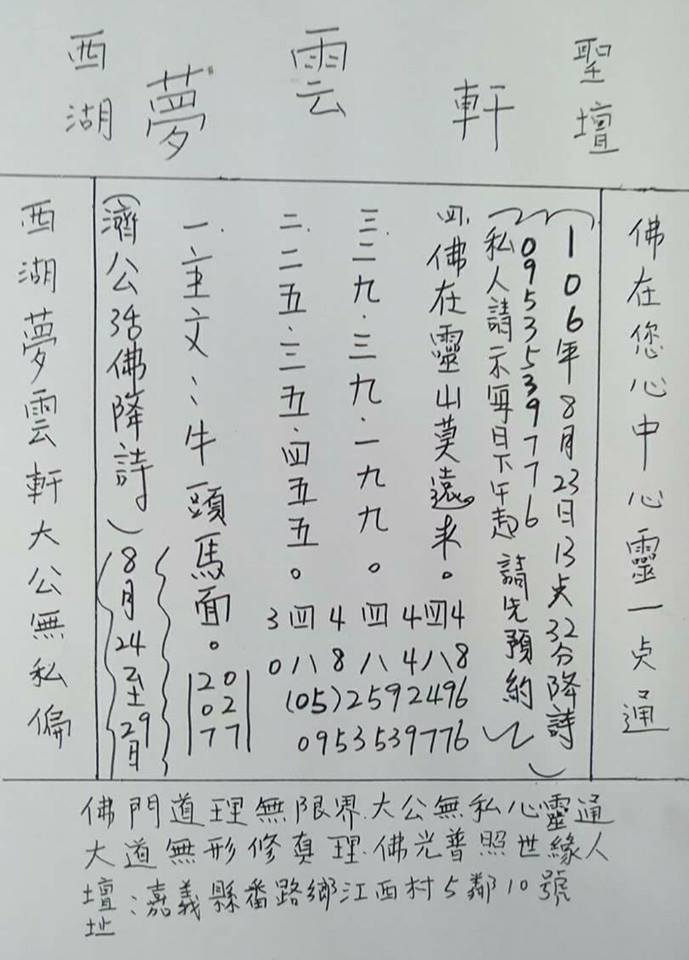 西湖夢雲軒聖壇
佛在您心中心靈一点通
(106年8月23日13点32分降詩)
0953539776
私人請示每日下午起 請先預約
四.佛在靈山莫遠求。
三.二九.三九.一九九。
二.二五.三五.四五五。
一.主文:牛頭馬面。
(濟公活佛降詩)
8月24至29日
3四4四4四4
0八8八4八8
(05)2592496
0953539776
20
02
77
西湖夢雲軒大公無私偏
佛門道理無限界.大公無私心靈通
大道無形修真理.佛光普照世緣人
壇址:嘉義縣番路鄉江西村5鄰10號